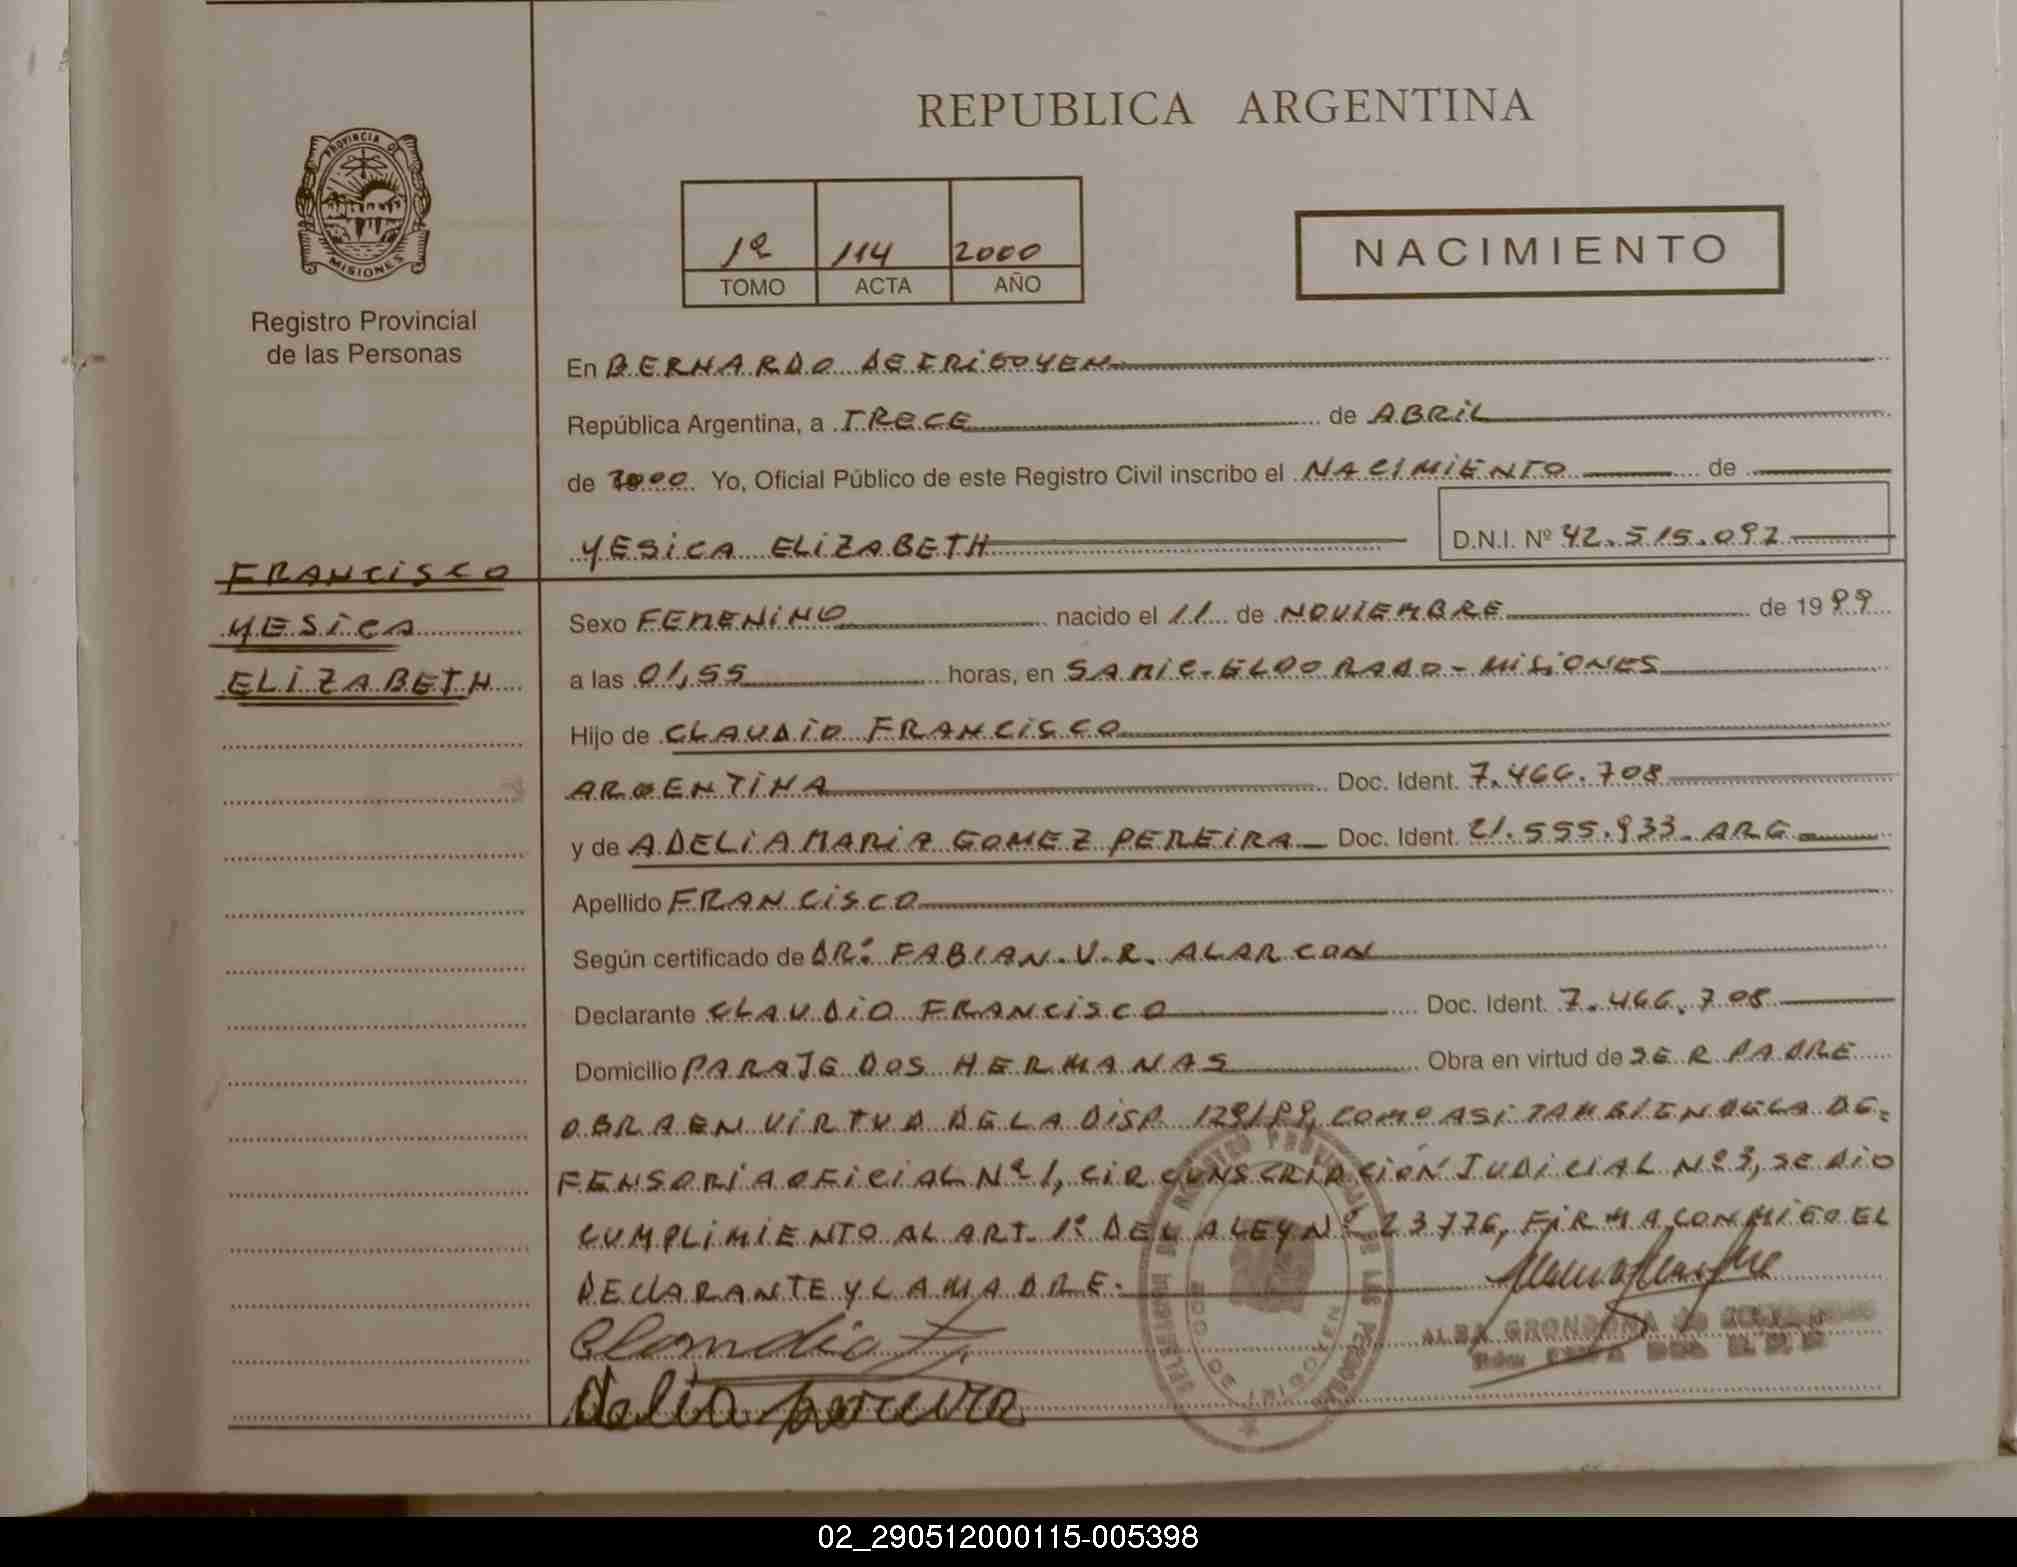 REPUBLICA ARGENTINA
PROVINCIA DE
MISIONES
Registro Provincial
de las Personas
1º 114 2000
TOMO ACTA AÑO
NACIMIENTO
En BERNARDO DE IRIGOYEN
República Argentina, a TRECE de ABRIL
de 2000. Yo, Oficial Público de este Registro Civil inscribo el NACIMIENTO de
YESICA ELIZABETH D.N.I. Nº 42.515.097
FRANCISCO
YESICA
ELIZABETH
Sexo FEMENINO nacido el 11 de NOVIEMBRE de 1999
a las 01,55 horas, en SAMIC-ELDORADO-MISIONES
Hijo de CLAUDIO FRANCISCO
ARGENTINA Doc. Ident. 7.466.708
y de ADELIA MARIA GOMEZ PEREIRA Doc. Ident. 21.555.933-ARG
Apellido FRANCISCO
Según certificado de DR: FABIAN.V.R. ALARCON
Declarante CLAUDIO FRANCISCO Doc. Ident. 7.466.708
Domicilio PARAJE DOS HERMANAS Obra en virtud de SER PADRE
OBRA EN VIRTUD DE LA DISP. 129/99, COMO ASI TAMBIEN DE LA DE=
FENSORIA OFICIAL Nº 1, CIRCUNSCRIPCION JUDICIAL Nº 3, SE DIO
CUMPLIMIENTO AL ART. 1º DE LA LEY Nº 23776, FIRMA CONMIGO EL
DECLARANTE Y LA MADRE.
Claudio F.
ALBA GRONDONA de
delia pereira
02_290512000115-005398